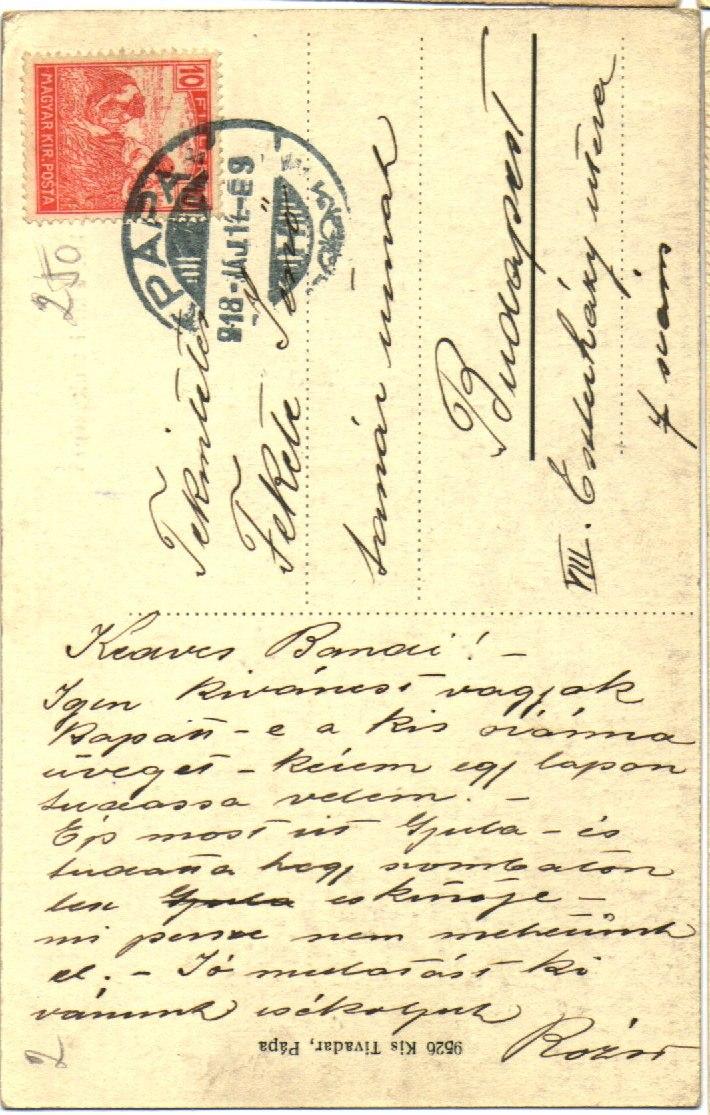 10 FILLÉR
MAGYAR KIR. POSTA
PÁPA
918 MÁJ 11
250
Tekintetes
Fekete
tanár urnak
Budapest
VIII. Eszterházy utca
7 szám
Kedves Bandi! -
Igen kiváncsi vagyok
kapott-e a kis
üveget - kérem egy lapon
tudassa velem. -
Ép most irt Gyula - és
tudatta hogy szombaton
lesz Gyula esküvője -
mi persze nem mehetünk
el. - Jó mulatást ki
vánunk csókoljuk
9526 Kis Tivadar, Pápa
2